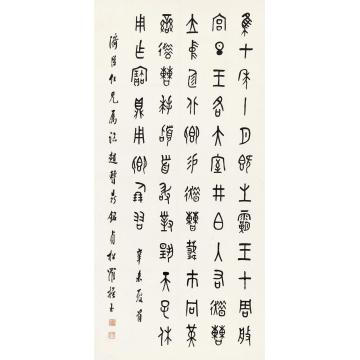 隹七年十月既生霸王才周般
宮旦王各大室井白入右趞曹
立中廷北鄉易趞曹載市冋黃
䜌趞曹拜稽首敢對揚天子休
用乍寶鼎用鄉倗友 辛未
仁兄屬臨趞曹鼎銘貞松羅振玉